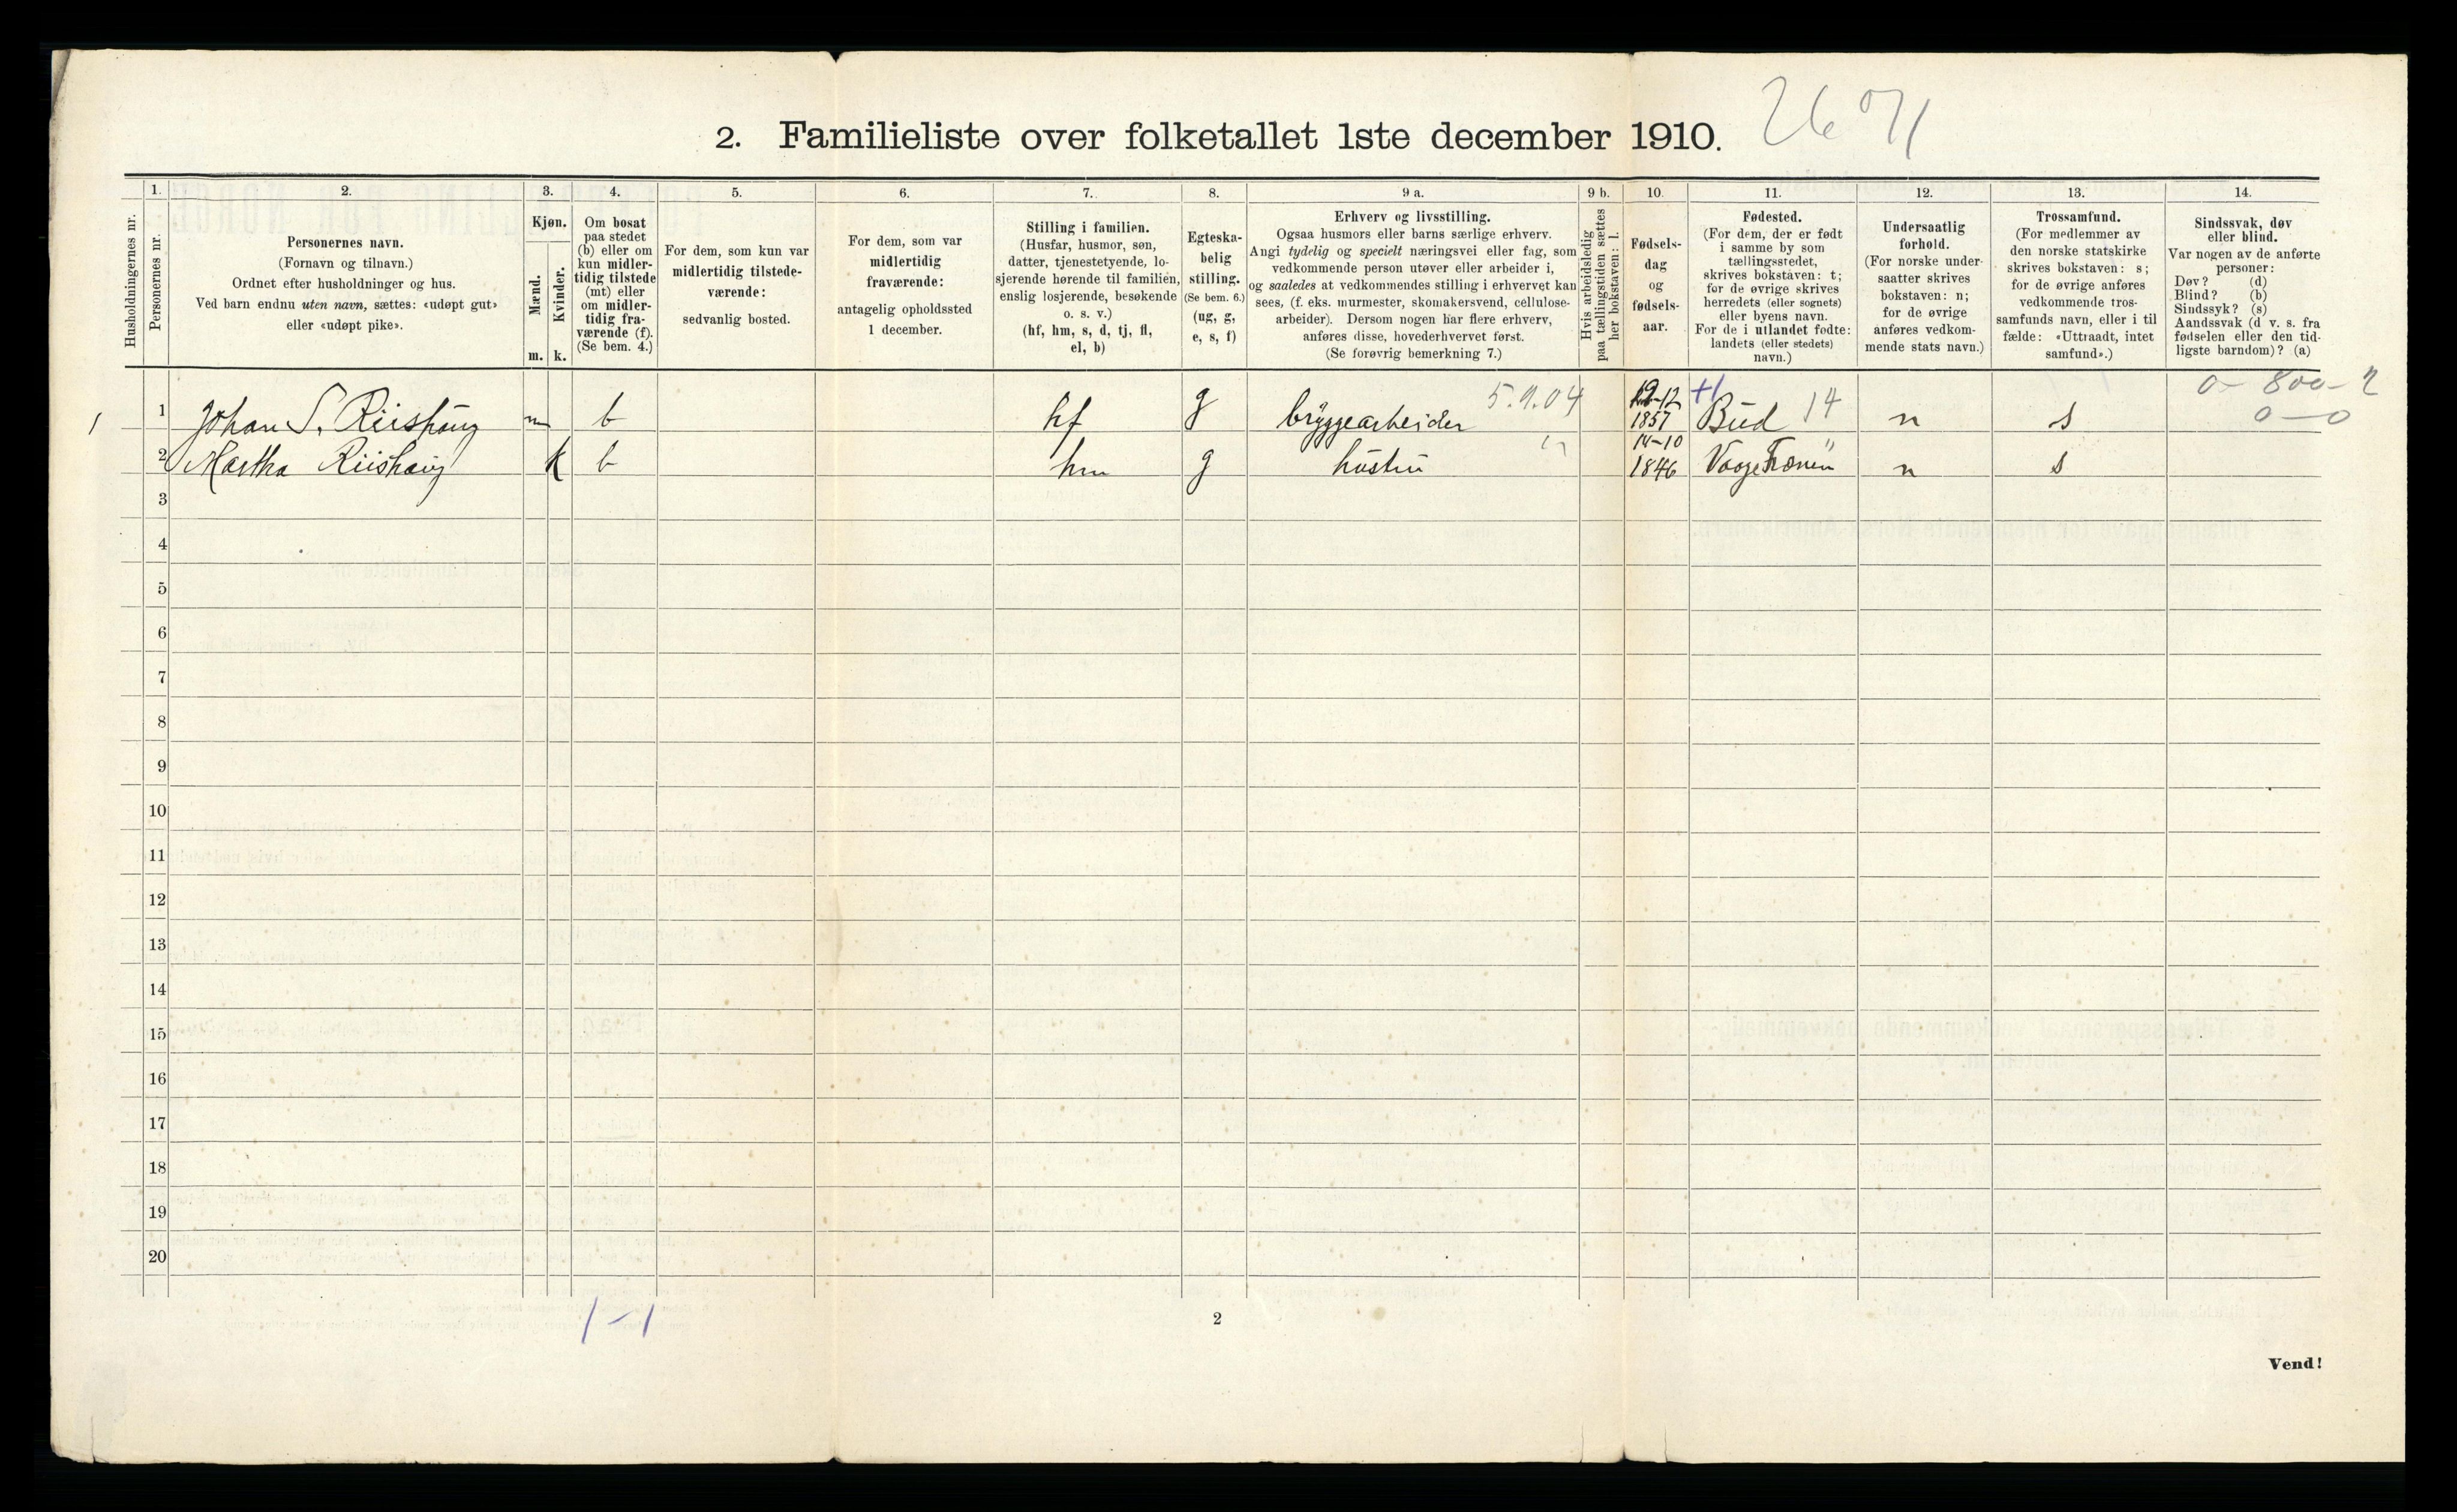 2. Familieliste over folketallet 1ste december 1910.
Husholdningernes nr.
1.
Personernes nr.
2.
Personernes navn.
(Fornavn og tilnavn.)
Ordnet efter husholdninger og hus.
Ved barn endnu uten navn, sættes: «udøpt gut»
eller «udøpt pike».
3.
Kjøn.
Mænd.
Kvinder.
m. k.
4.
Om bosat
paa stedet
(b) eller om
kun midler-
tidig tilstede
(mt) eller
om midler-
tidig fra-
værende (f).
(Se bem. 4.)
5.
For dem, som kun var
midlertidig tilstede-
værende:
sedvanlig bosted.
6.
For dem, som var
midlertidig
fraværende:
antagelig opholdssted
1 december.
7.
Stilling i familien.
(Husfar, husmor, søn,
datter, tjenestetyende, lo-
sjerende hørende til familien,
enslig losjerende, besøkende
o. s. v.)
(hf, hm, s, d, tj, fl,
el, b)
8.
Egteska-
belig
stilling.
(Se bem. 6.)
(ug, g,
e, s, f)
9 a.
Erhverv og livsstilling.
Ogsaa husmors eller barns særlige erhverv.
Angi tydelig og specielt næringsvei eller fag, som
vedkommende person utøver eller arbeider i,
og saaledes at vedkommendes stilling i erhvervet kan
sees, (f. eks. murmester, skomakersvend, cellulose-
arbeider). Dersom nogen har flere erhverv,
anføres disse, hovederhvervet først.
(Se forøvrig bemerkning 7.)
9 b.
Hvis arbeidsledig
paa tællingstiden sættes
her bokstaven: l.
10.
Fødsels-
dag
og
fødsels-
aar.
11.
Fødested.
(For dem, der er født
i samme by som
tællingsstedet,
skrives bokstaven: t;
for de øvrige skrives
herredets (eller sognets)
eller byens navn.
For de i utlandet fødte:
landets (eller stedets)
navn.)
12.
Undersaatlig
forhold.
(For norske under-
saatter skrives
bokstaven: n;
for de øvrige
anføres vedkom-
mende stats navn.)
13.
Trossamfund.
(For medlemmer av
den norske statskirke
skrives bokstaven: s;
for de øvrige anføres
vedkommende tros-
samfunds navn, eller i til
fælde: «Uttraadt, intet
samfund».)
14.
Sindssvak, døv
eller blind.
Var nogen av de anførte
personer:
Døv? (d)
Blind? (b)
Sindssyk? (s)
Aandssvak (d v. s. fra
fødselen eller den tid-
ligste barndom)? (a)
1 Johan S. Riishaug m b hf g bryggearbeider 5.9.04 1857 Bud 14 n s 0 - 800 - 2
0 - 0
2 Martha Riishaug k b hm g hustru 14-10 1846 n s
3
4
5
6
7
8
9
10
11
12
13
14
15
16
17
18
19
20
1-1
2
Vend!